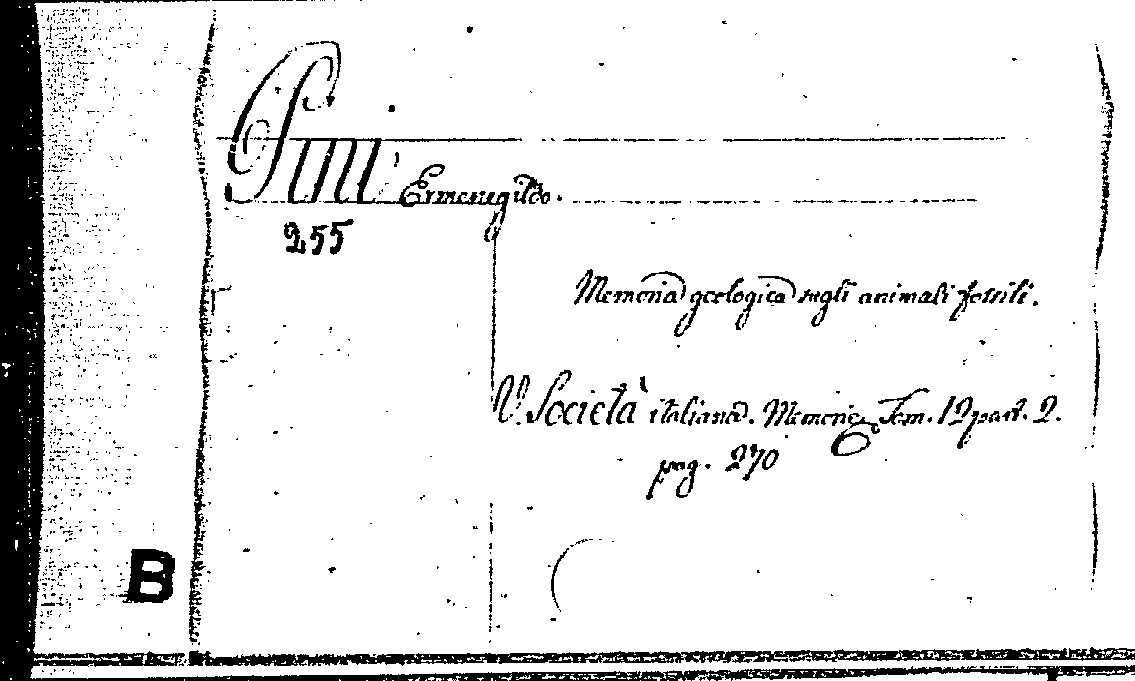 Pini
Ermenegildo.
255
Memoria geologica sugli animali fossili.
V. Società italiana. Memorie Tom. 12 part. 2.
pag. 270
B